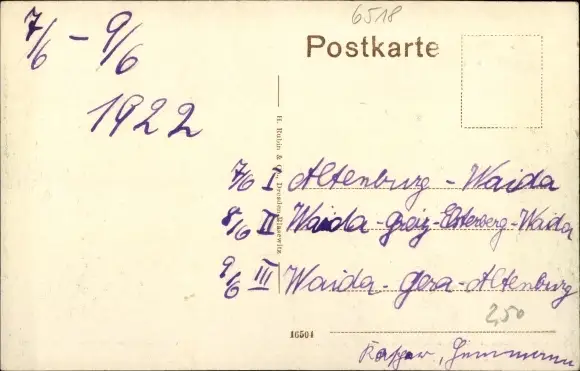 6518
7/6 - 9/6
1922
Postkarte
H. Rubin & Co., Dresden-Blasewitz
7/6 I Altenburg - Waida
8/6 II Waida - Greiz - Elsterberg - Waida
9/6 III Waida - Gera - Altenburg
2,50
16504